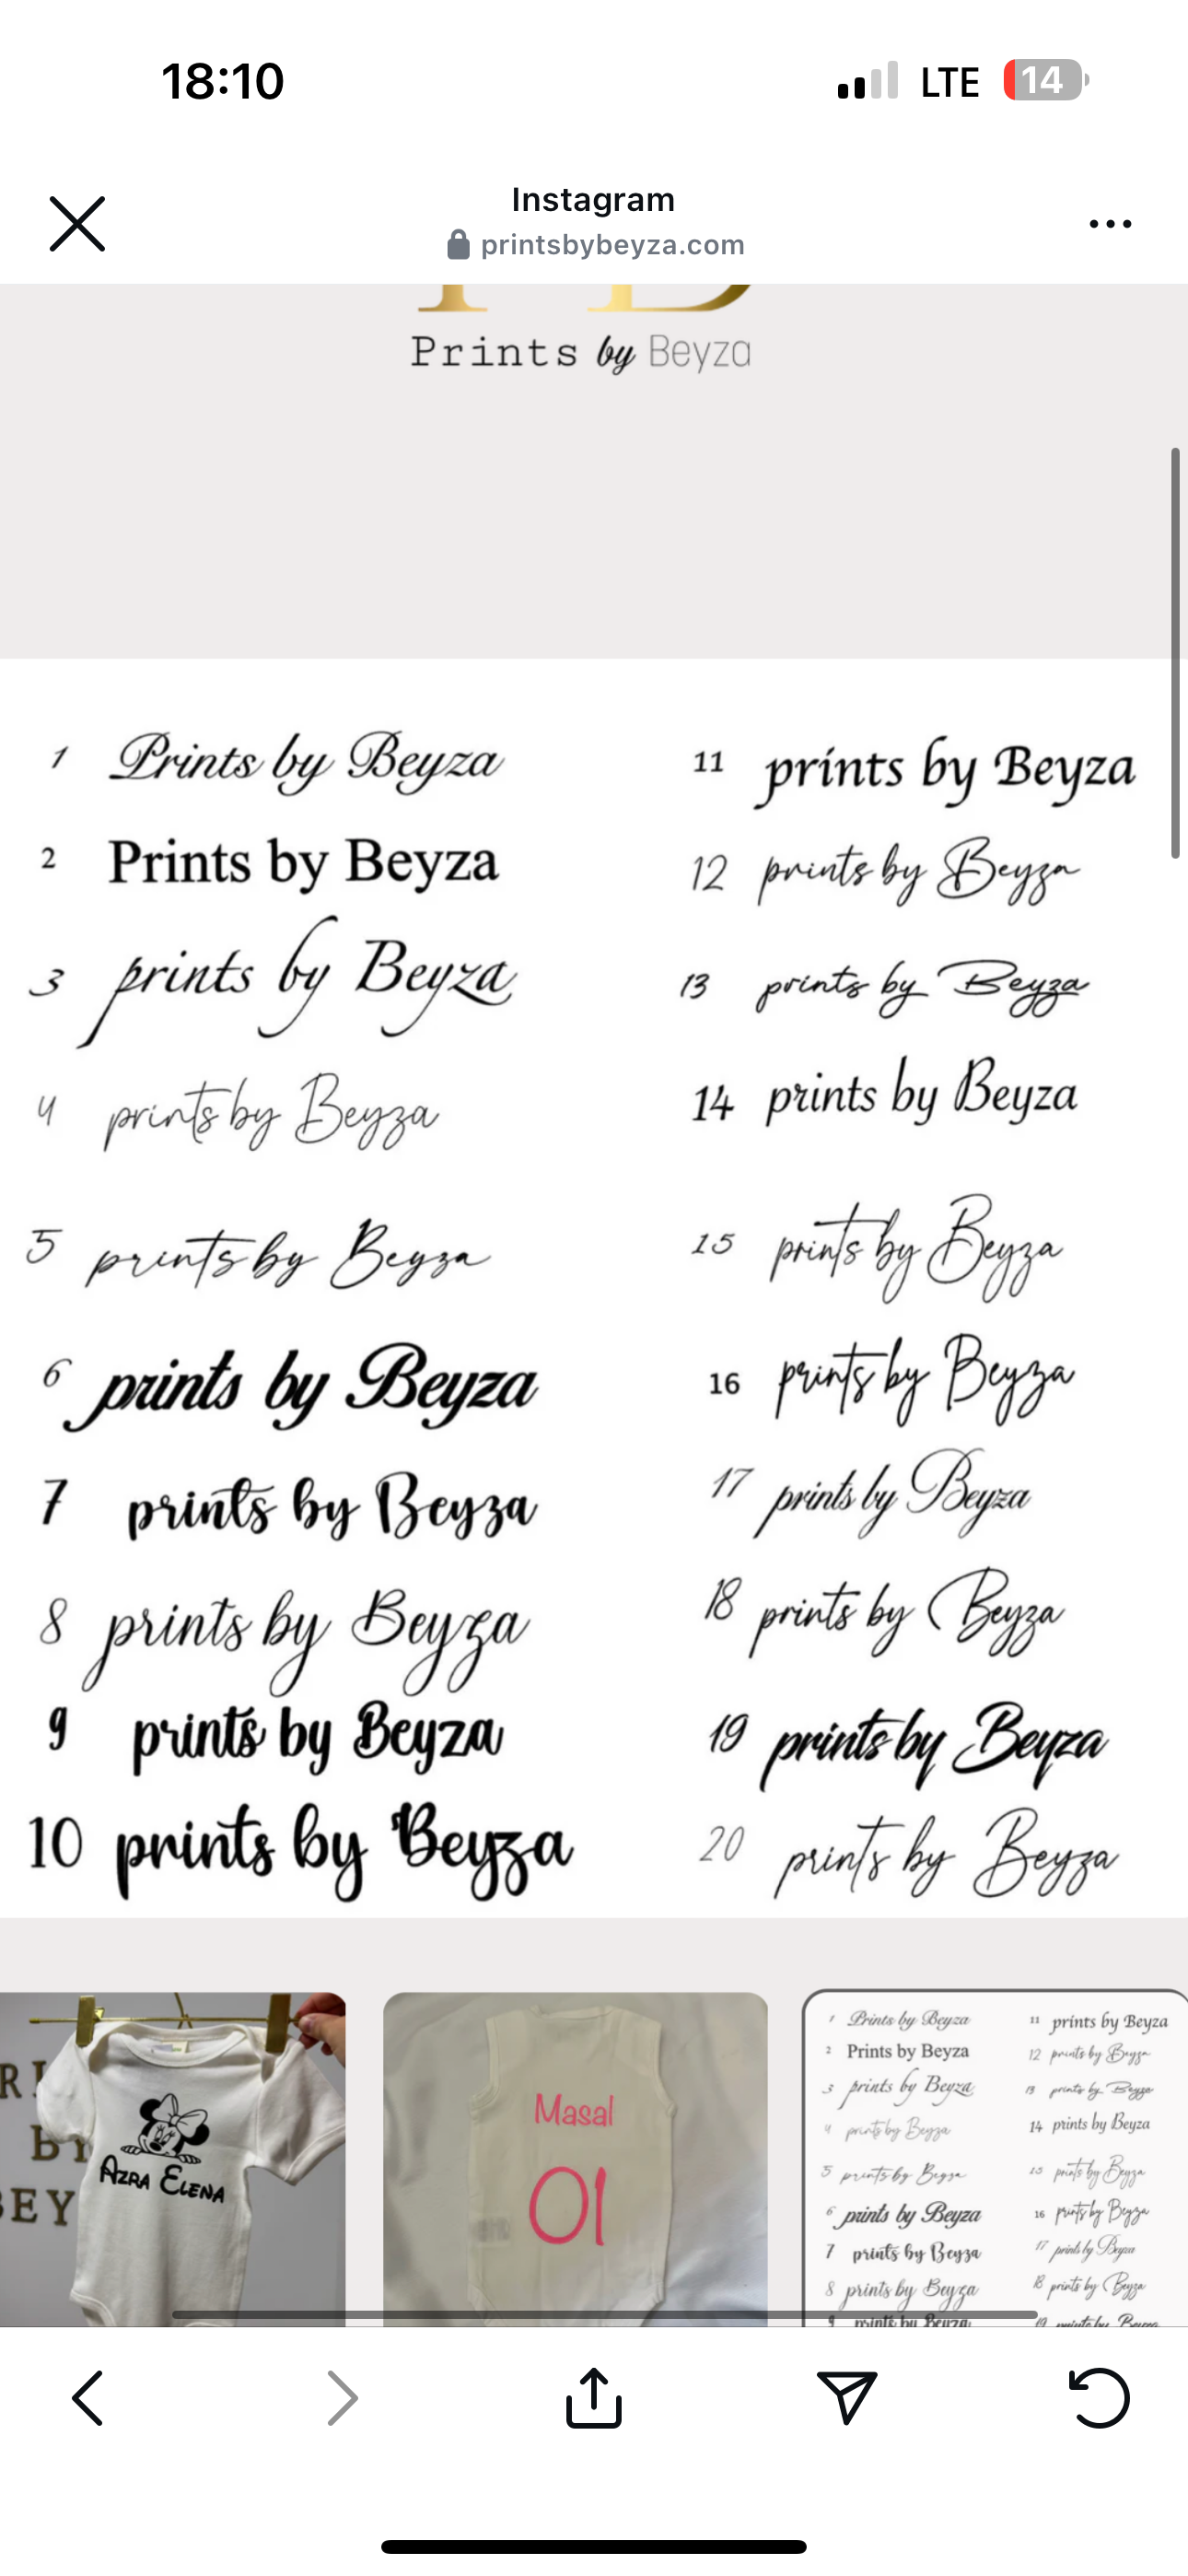 18:10
LTE 14
Instagram
printsbybeyza.com
Prints by Beyza
1 Prints by Beyza
2 Prints by Beyza
3 prints by Beyza
4 prints by Beyza
5 prints by Beyza
6 prints by Beyza
7 prints by Beyza
8 prints by Beyza
9 prints by Beyza
10 prints by Beyza
11 prints by Beyza
12 prints by Beyza
13 prints by Beyza
14 prints by Beyza
15 prints by Beyza
16 prints by Beyza
17 prints by Beyza
18 prints by Beyza
19 prints by Beyza
20 prints by Beyza
BY
AZRA ELENA
Masal
01
1 Prints by Beyza
2 Prints by Beyza
3 prints by Beyza
4 prints by Beyza
5 prints by Beyza
6 prints by Beyza
7 prints by Beyza
8 prints by Beyza
9 prints by Beyza
11 prints by Beyza
12 prints by Beyza
13 prints by Beyza
14 prints by Beyza
15 prints by Beyza
16 prints by Beyza
17 prints by Beyza
18 prints by Beyza
19 prints by Beyza